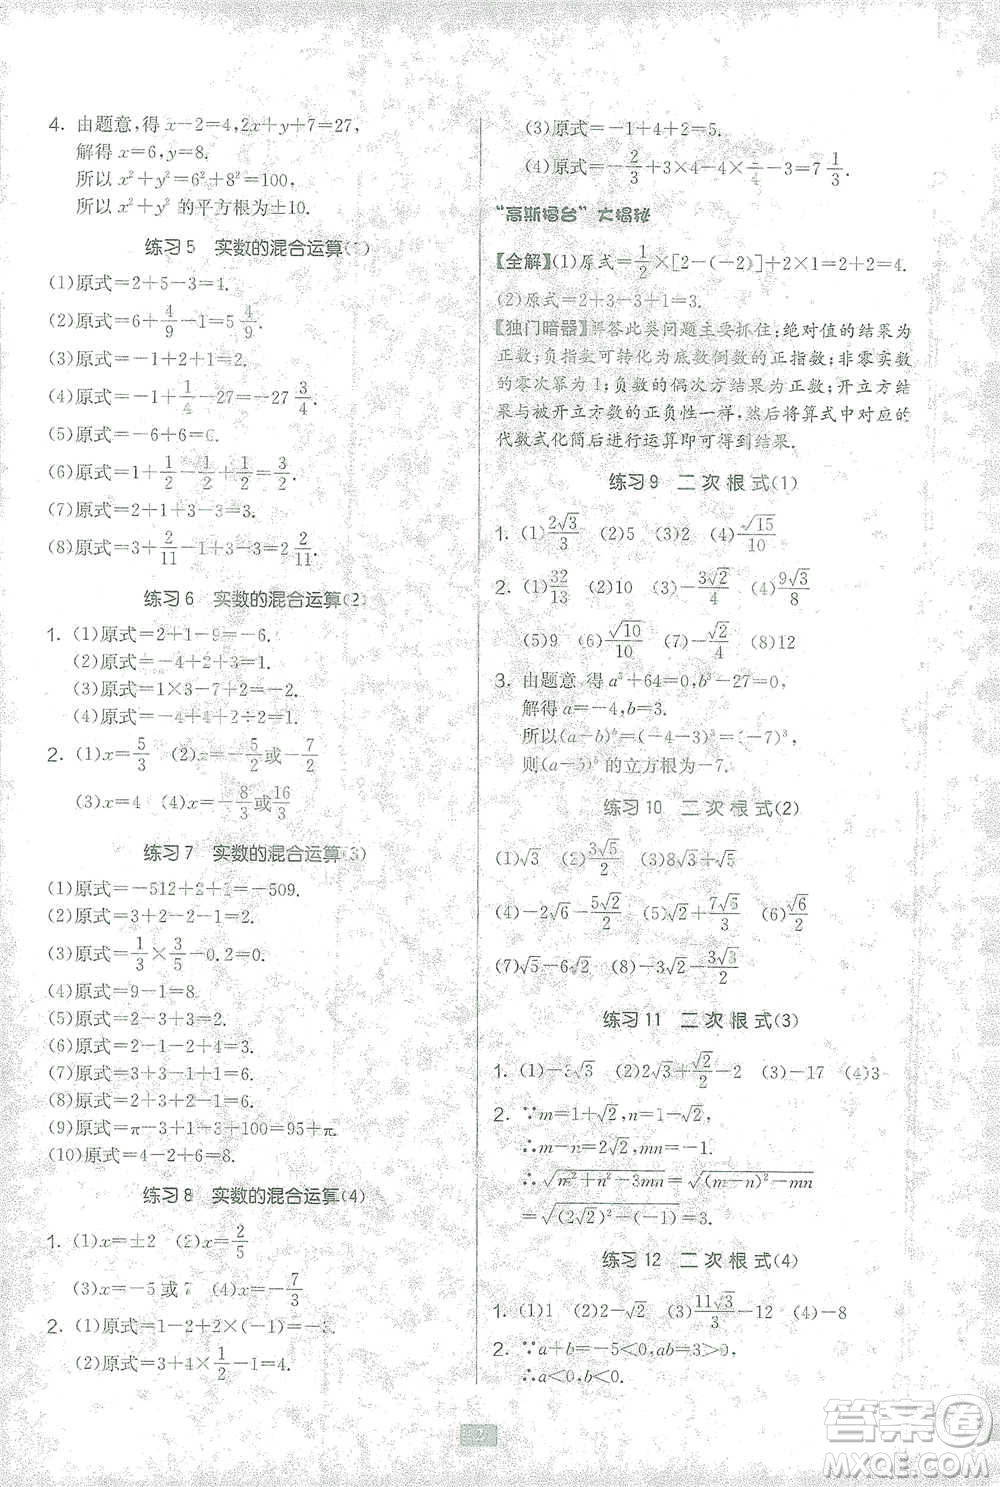 4. 由题意,得 x-2=4,2x+y+7=27,
解得 x=6,y=8.
所以 x²+y²=6²+8²=100,
所以 x²+y² 的平方根为±10.
练习 5 实数的混合运算(1)
(1)原式=2+5-3=4.
(2)原式=6+4/9-1=5 4/9.
(3)原式=2-3+2=1.
(4)原式=-1+1/4-27=-27 3/4.
(5)原式=-6+6=0.
(6)原式=1+1/2-1/2+1/2=1 1/2.
(7)原式=2+1+3-3√3.
(8)原式=3+2/11-1+3-3=2 2/11.
练习 6 实数的混合运算(2)
1. (1)原式=2+1-9=-6.
(2)原式=-4+2+3=1.
(3)原式=1×3-7+2=-2.
(4)原式=-4+4+2÷2=1.
2. (1)x=5/3 (2)x=-5/2或-7/2
(3)x=4 (4)x=-8/3或16/3
练习 7 实数的混合运算(3)
(1)原式=-512+2+1=-509.
(2)原式=3+2-2-1=2.
(3)原式=1/3×3/5-0.2=0.
(4)原式=9-1=8
(5)原式=2-3+3=2.
(6)原式=
(7)原式=
(8)原式=
(9)原式=π-3+1-3+100=95+π.
(10)原式=4-2+6=8.
练习 8 实数的混合运算(4)
1. (1)x=±2 (2)x=2/5
(3)x=-5 或 7 (4)x=-7/3
2. (1)原式=
(2)原式=3+4×1/2-1=4.
(3)原式=-1+4+2=5.
(4)原式=-2/3+3×4-4×-3=7 1/3.
“高斯擂台”大揭秘
【全解】(1)原式=1/2×[2-(-2)]+2×1=2+2=4.
(2)原式=2+3-3+1=3.
【独门暗器】解答此类问题主要抓住:绝对值的结果为
正数;负指数可转化为底数倒数的正指数;非零实数
的零次幂为 1;负数的偶次方结果为正数;开立方结
果与被开立方数的正负性一样,然后将算式中对应的
代数式化简后进行运算即可得到结果.
练习 9 二次根式(1)
1. (1)2√3/3 (2)5 (3)2 (4)-√15/10
2. (1)32/13 (2)10 (3)-3√2/4 (4)9√3/8
(5)9 (6)√10/10 (7)-√2/4 (8)12
3. 由题意 得 a³+64=0,b³-27=0,
解得 a=-4,b=3.
所以(a-b)³=(-4-3)³=(-7)³,
则(a-b)³ 的立方根为-7.
练习 10 二次根式(2)
(1)√3 (2)3√5/2 (3)8√3+√5
(4)-2√6-5√2/2 (5)√2+ (6)√6/2
(7)√5-√2 (8)-3√2-
练习 11 二次根式(3)
1. (1)-3√3 (2)2√3+√2/2-2 (3)-17 (4)3
2. ∵m=1+√2,n=1-√2,
∴m-n=2√2,mn=-1.
∴√(m²+n²-3mn)=√((m-n)²-mn)
=√((2√2)²-(-1))=3.
练习 12 二次根式(4)
1. (1)1 (2)2-√2 (3)11√3/3-12 (4)-8
2. ∵a+b=-5<0,ab=3>0,
∴a<0,b<0.
2
答案圈
MXQE.COM